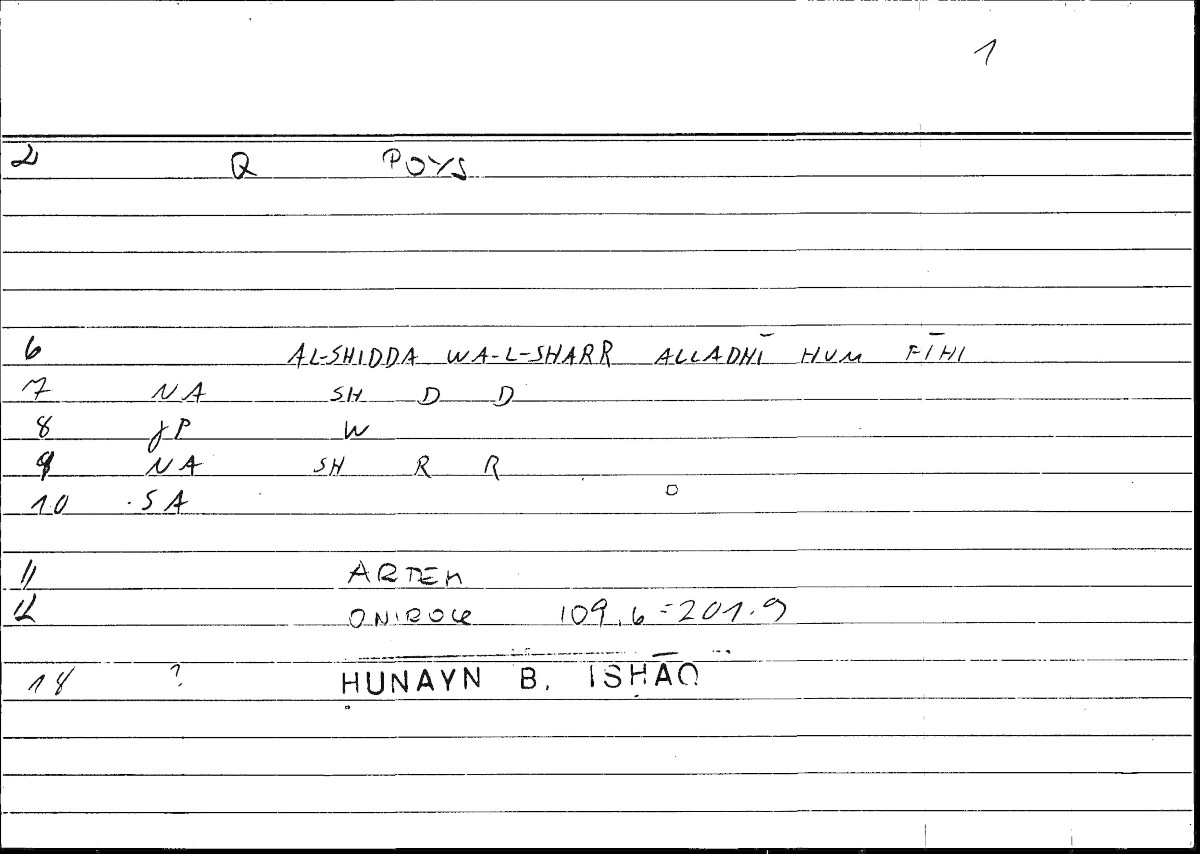 1
2 Q POYS
6 AL-SHIDDA WA-L-SHARR ALLADHĪ HUM FĪHI
7 NA SH D D
8 JP W
9 NA SH R R
10 SA
11 ARTEM
12 ONIROCR 109.6=201.9
18 ? ḤUNAYN B. ISḤĀQ